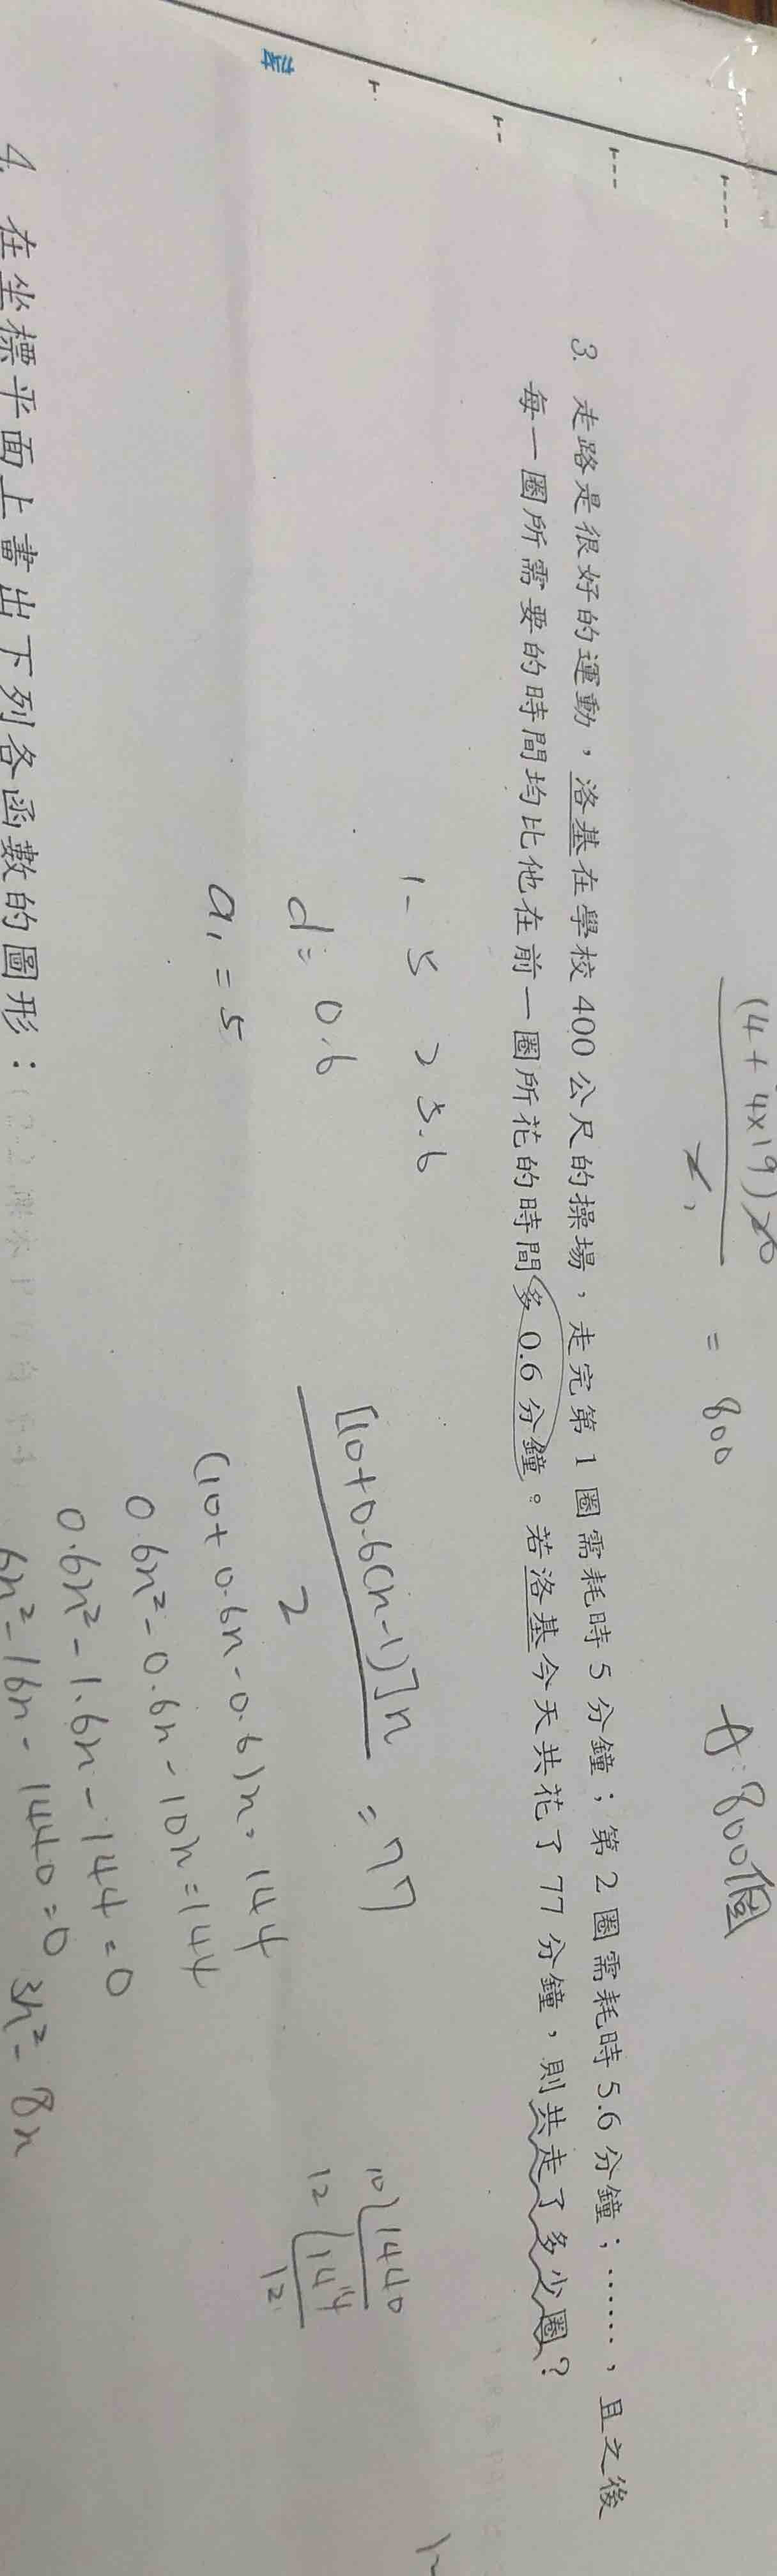 (4+4×19)20
2
= 800
A:800個
3. 走路是很好的運動，洛基在學校 400 公尺的操場，走完第 1 圈需耗時 5 分鐘；第 2 圈需耗時 5.6 分鐘；……，且之後
每一圈所需要的時間均比他在前一圈所花的時間多 0.6 分鐘。若洛基今天共花了 77 分鐘，則共走了多少圈？
5 5.6
d= 0.6
a₁ = 5
[10+0.6(n-1)]n
2
= 77
(10+0.6n-0.6)n=144
0.6n²-0.6n-10n=144
0.6n²-1.6n-144=0
6n²-16n-1440=0
3n²-8n
10)1440
12)144
12
4. 在坐標平面上畫出下列各函數的圖形：